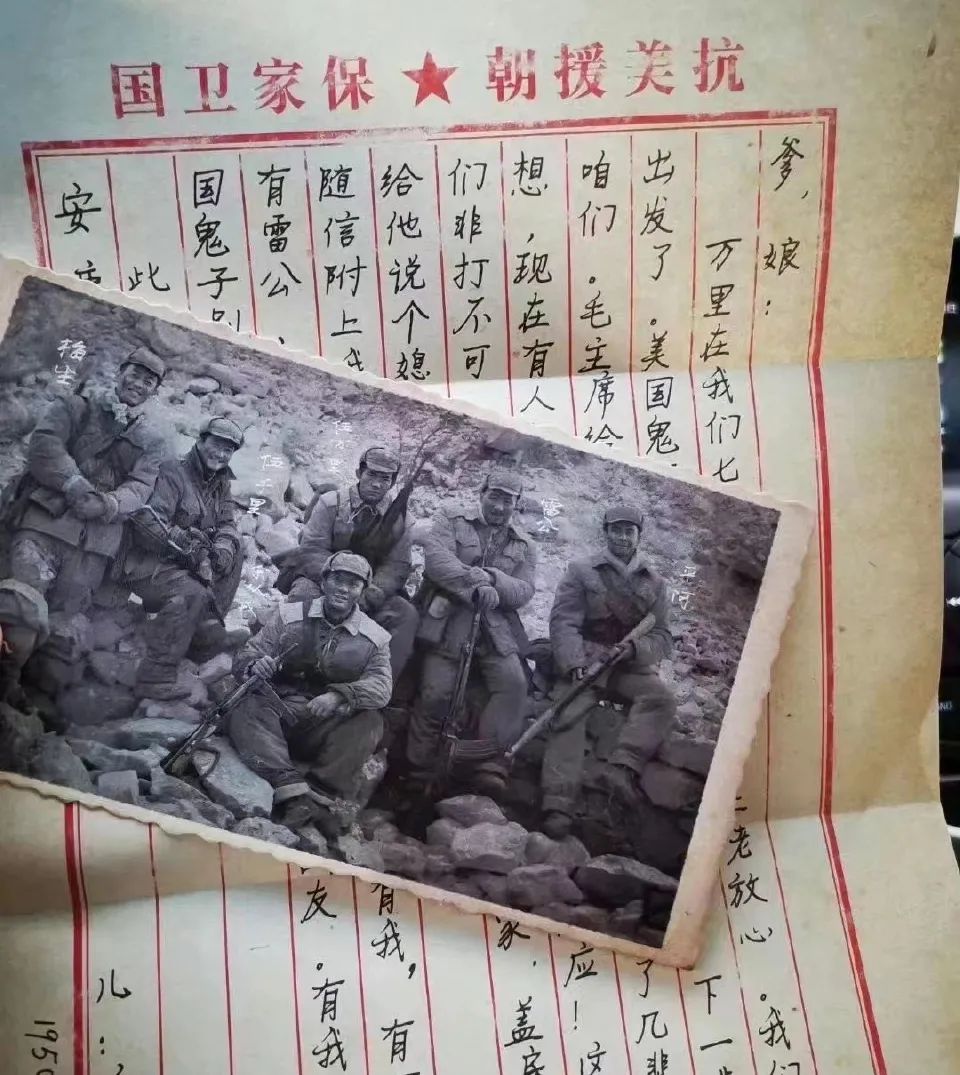 抗美援朝★保家卫国
爹，娘：
万里在我们七
二老放心。我们
出发了。美国鬼
下一步
咱们。毛主席给
了几
想，现在有人
应！这
们非打不可
家，盖房
给他说个媳
随信附上我
有我，有
有雷公、
友。有我
国鬼子别
此
儿：
安
195
梅生
伍千里
伍万里
雷公
平河